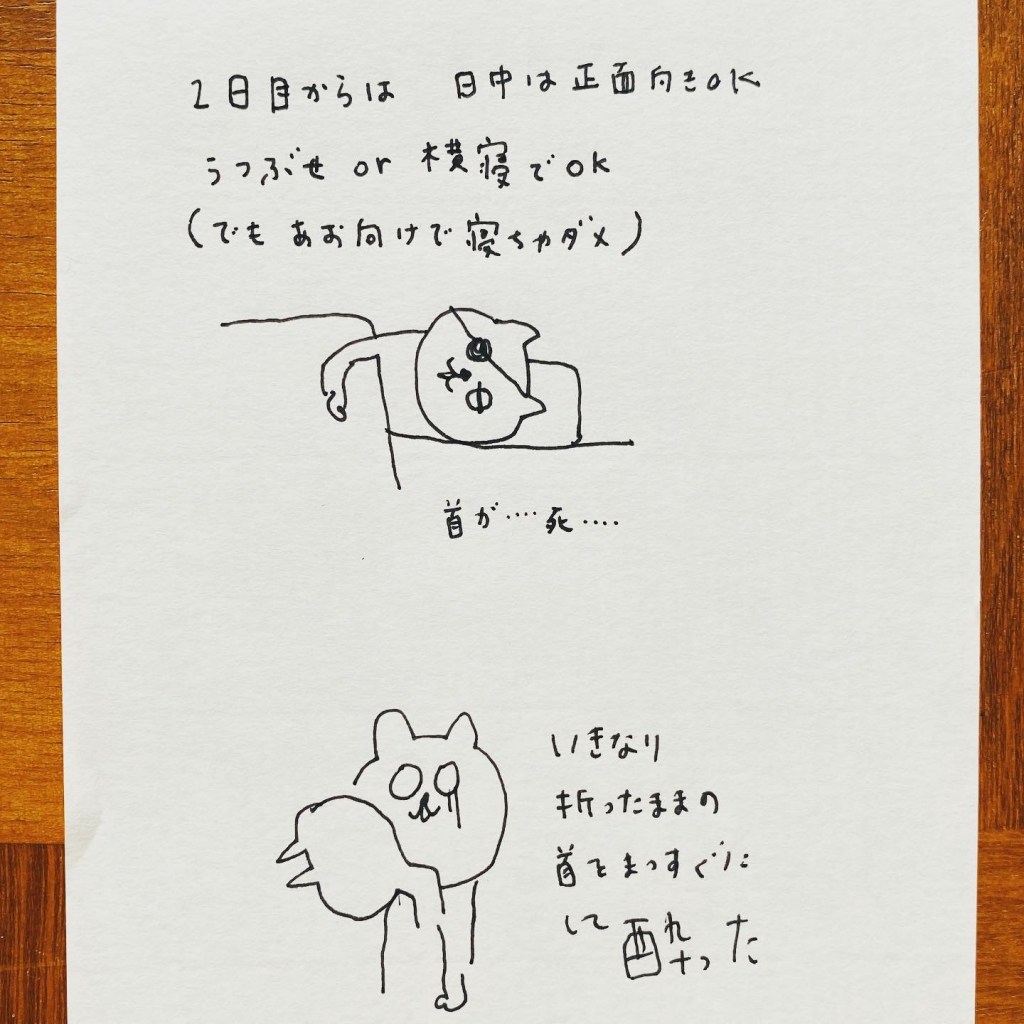 2日目からは 日中は正面向きOK
うつぶせ or 横寝でOK
(でも あお向けで寝ちゃダメ)
首が‥‥死‥‥
いきなり
折ったままの
首をまっすぐに
して 酔った